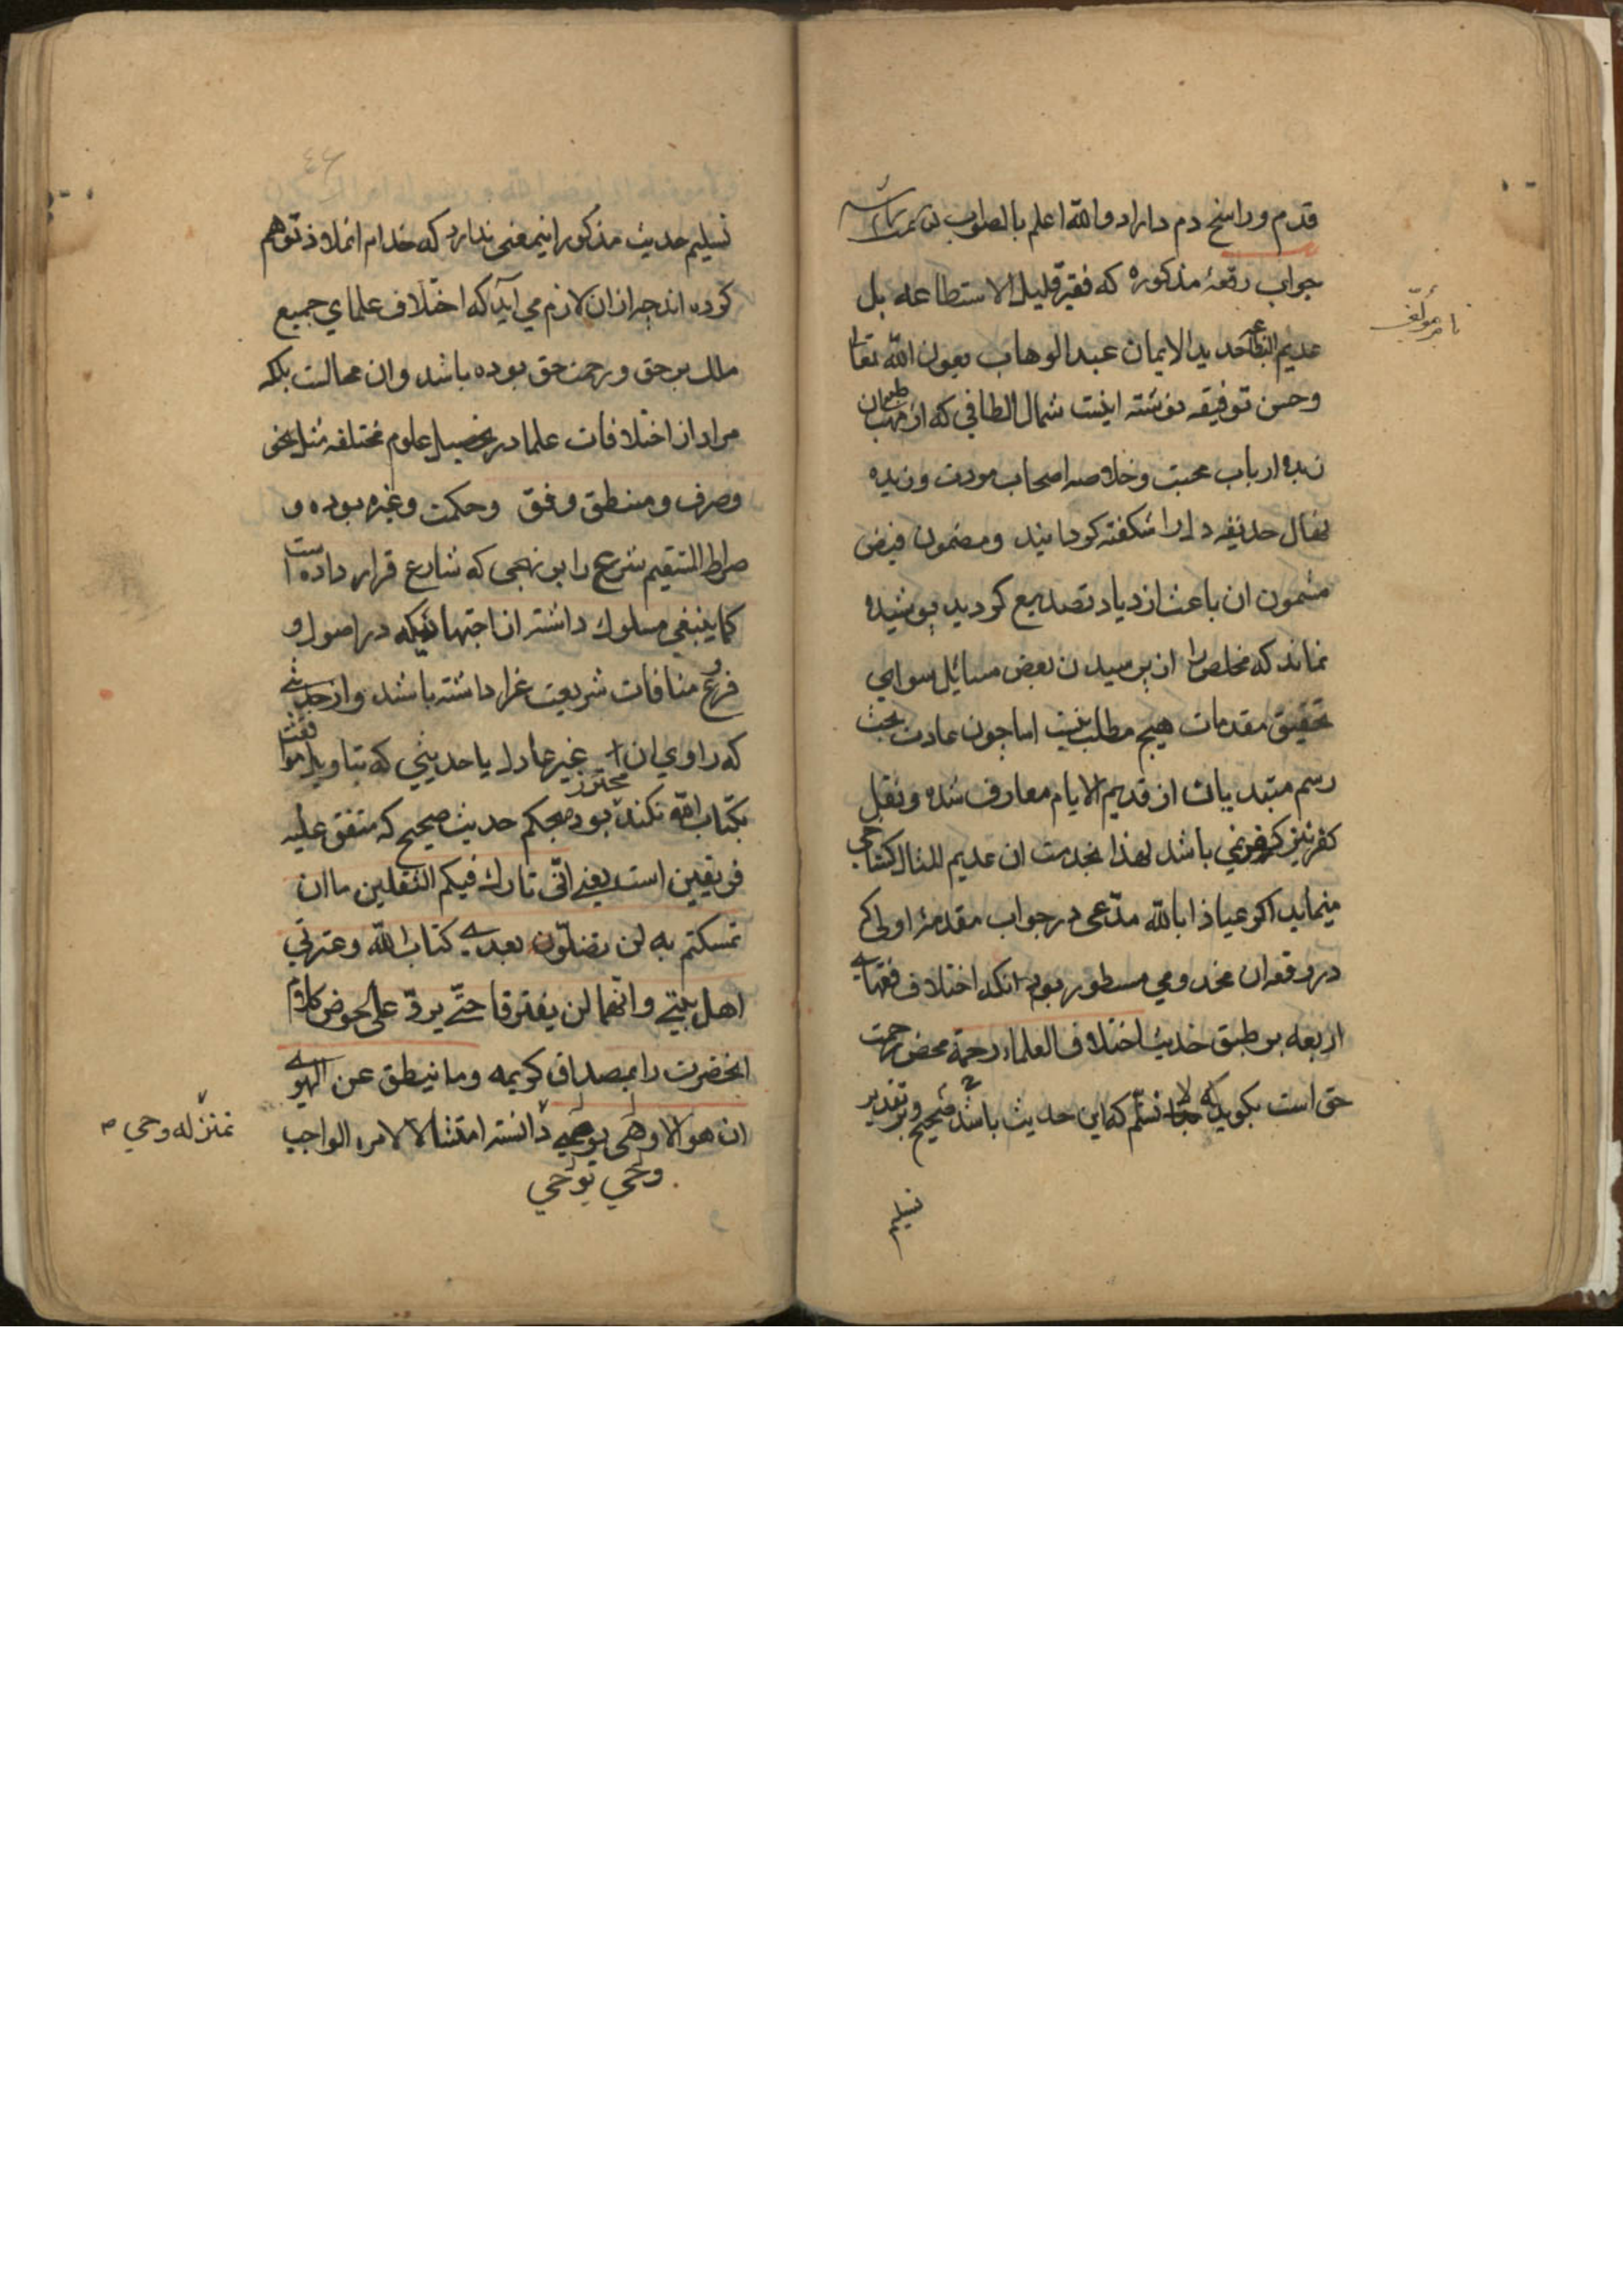 قدم و راسخ دم دارد والله اعلم بالصواب
جواب رقعهٔ مذکوره که فقیر قلیل الاستطاعه بل
نام مؤلف
عدیم البضاعه حدید الایمان عبد الوهاب بعون الله تعالی
و حسن توفیقه نوشته اینست شمال الطافی که از مهب
زبدهٔ ارباب محبت و خلاصه اصحاب مودت وزیده
نهال حدیقه دل را شکفته کردانید و مضمون فیض
مشحون ان باعث ازدیاد تصدیع کردید پوشیده
نماند که مخلص را از پرسیدن بعض مسائل سوای
تحقیق مقدمات هیچ مطلب نیست اما چون عادت بحث
رسم مبتدیات از قدیم الایام معارف شده و نقل
کفر نیز کفر نمی باشد لهذا بخدمت ان عدیم المثال کستاخی
مینماید اکر عیاذا بالله مدعی در جواب مقدمهٔ اولی که
در رقعه ان مخدومی مسطور بود انکه اختلاف فقهای
اربعه بر طبق حدیث اختلاف العلماء رحمة محض رحمت
حق است بکوید که لا نسلم که این حدیث باشد صحیح و بر تقدیر
تسلیم
تسلیم حدیث مذکور اینمعنی ندارد که خدام انملاذ توهم
کرده اند چرا از ان لازم می اید که اختلاف علمای جمیع
ملل بر حق و رحمت حق بوده باشد وان محالست بلکه
مراد از اختلافات علما در تحصیل علوم مختلفه مثل نحو
و صرف و منطق و فق و حکمت و غیره بوده و
صراط المستقیم شرع را بر نهجی که شارع قرار داده است
کما ینبغی مسلوک داشته از اجتهاد نیکه در اصول و
فروع منافات شریعت غرا داشته باشند و از حدیثی
که راوی ان غیر عادل یا حدیثی که بتاویل موافقت
بکتاب الله نکند محترز بود بحکم حدیث صحیح که متفق علیه
فریقین است یعنی انی تارک فیکم الثقلین ما ان
تمسکتم به لن تضلون بعدی کتاب الله و عترتی
اهل بیتی و انهما لن یفترقا حتی یردّ علی الحوض کلام
انحضرت را بمصداق کریمه وما ینطق عن الهوی
ان هو الا وحی یوحی دانسته امتثالا لامره الواجب
وحی یوحی
بمنزله وحی